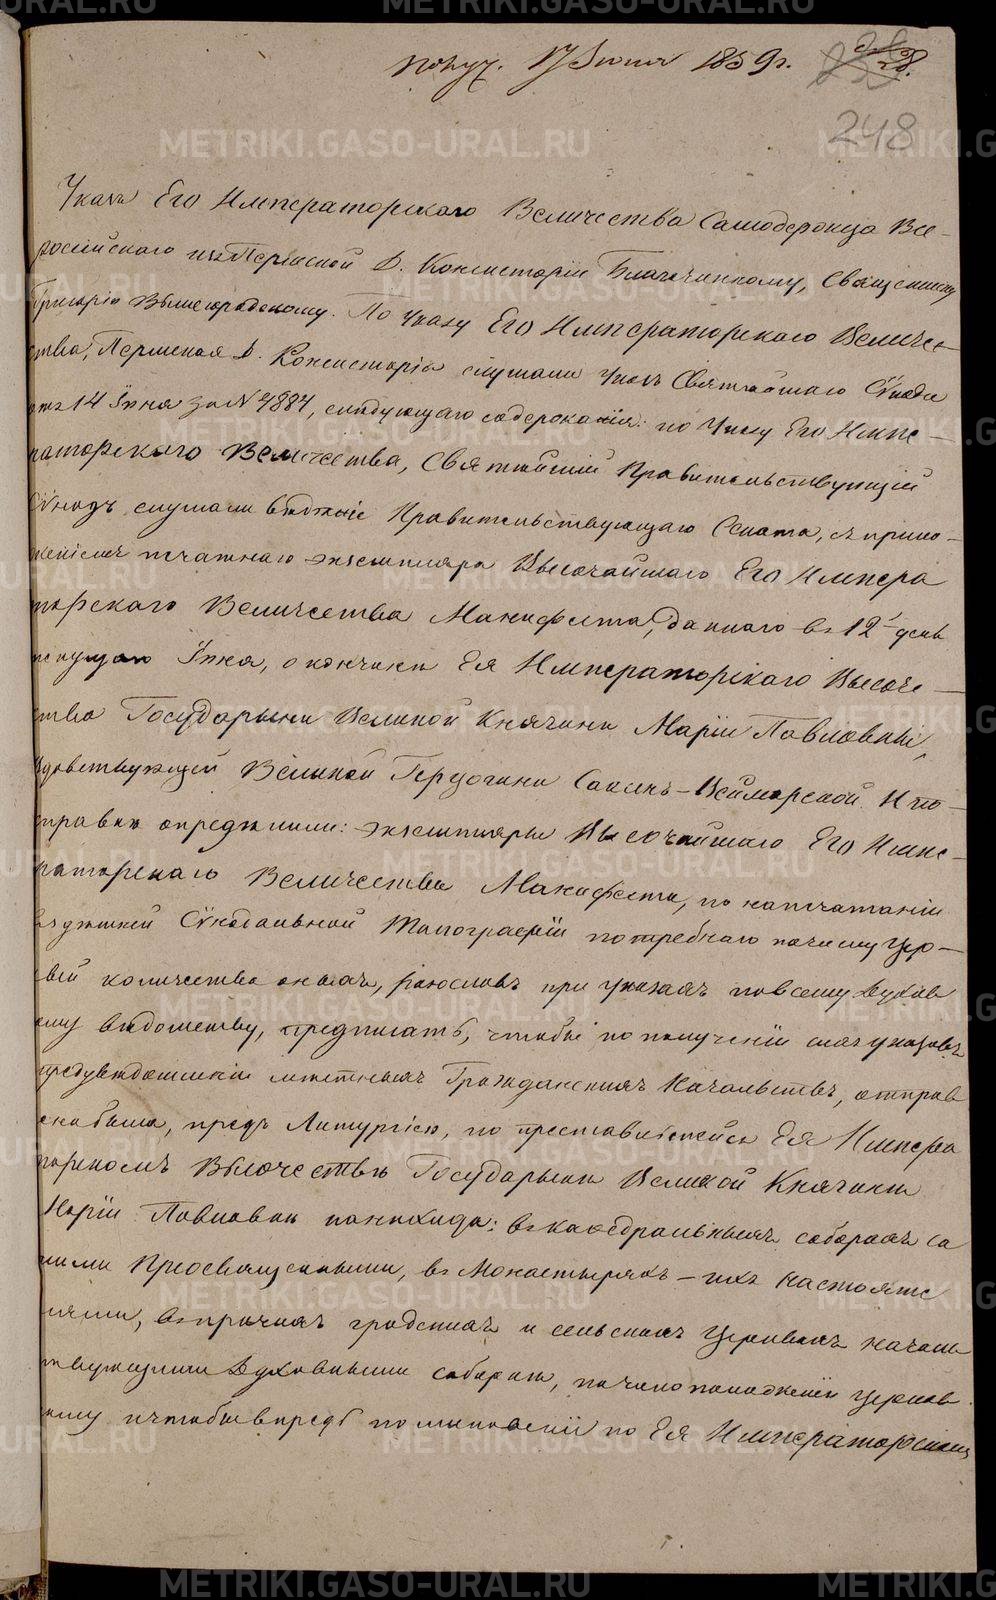 получ. 17 Іюля 1859 г.
28.
248
Указъ Его Императорскаго Величества Самодержца Все-
россійскаго изъ Пермской Д. Консисторіи Благочинному, Священнику
Григорію Вышегородскому. По указу Его Императорскаго Величе-
ства, Пермская Д. Консисторія слушали указъ Святѣйшаго Сѵнода
отъ 14 Іюня за № 4884, слѣдующаго содержанія: по Указу Его Импе-
раторскаго Величества, Святѣйшій Правительствующій
Сѵнодъ слушали вѣдѣніе Правительствующаго Сената, съ прило-
женіемъ печатнаго экземпляра Высочайшаго Его Импера
торскаго Величества Манифеста, даннаго въ 12 день
текущаго Іюня, о кончинѣ Ея Императорскаго Высоче-
ства Государыни Великой Княгини Маріи Павловны,
вдовствующей Великой Герцогини Саксенъ-Веймарской. И по
справкѣ опредѣлили: экземпляры Высочайшаго Его Импе-
раторскаго Величества Манифеста, по напечатаніи
въ здѣшней Сѵнодальной Типографіи потребнаго по числу цер-
квей количества оныхъ, разослать при указахъ по всему духов
ному вѣдомству, предписать, чтобы по полученіи сихъ указовъ
предувѣдомленіи мѣстныхъ Гражданскихъ Начальствъ, отправ
лена была, предъ Литургіею, по преставльшейся Ея Импера
торскомъ Высочествѣ Государынѣ Великой Княгинѣ
Маріи Павловнѣ панихида: въ каѳедральныхъ соборахъ са
мими Преосвященными, въ Монастыряхъ - ихъ настояте
лями, въ прочихъ градскихъ и сельскихъ церквахъ началь
ствующими Духовными соборнѣ, по чиноположенію церков
ному и чтобы впредь поминовеніи по Ея Императорскомъ
METRIKI.GASO-URAL.RU